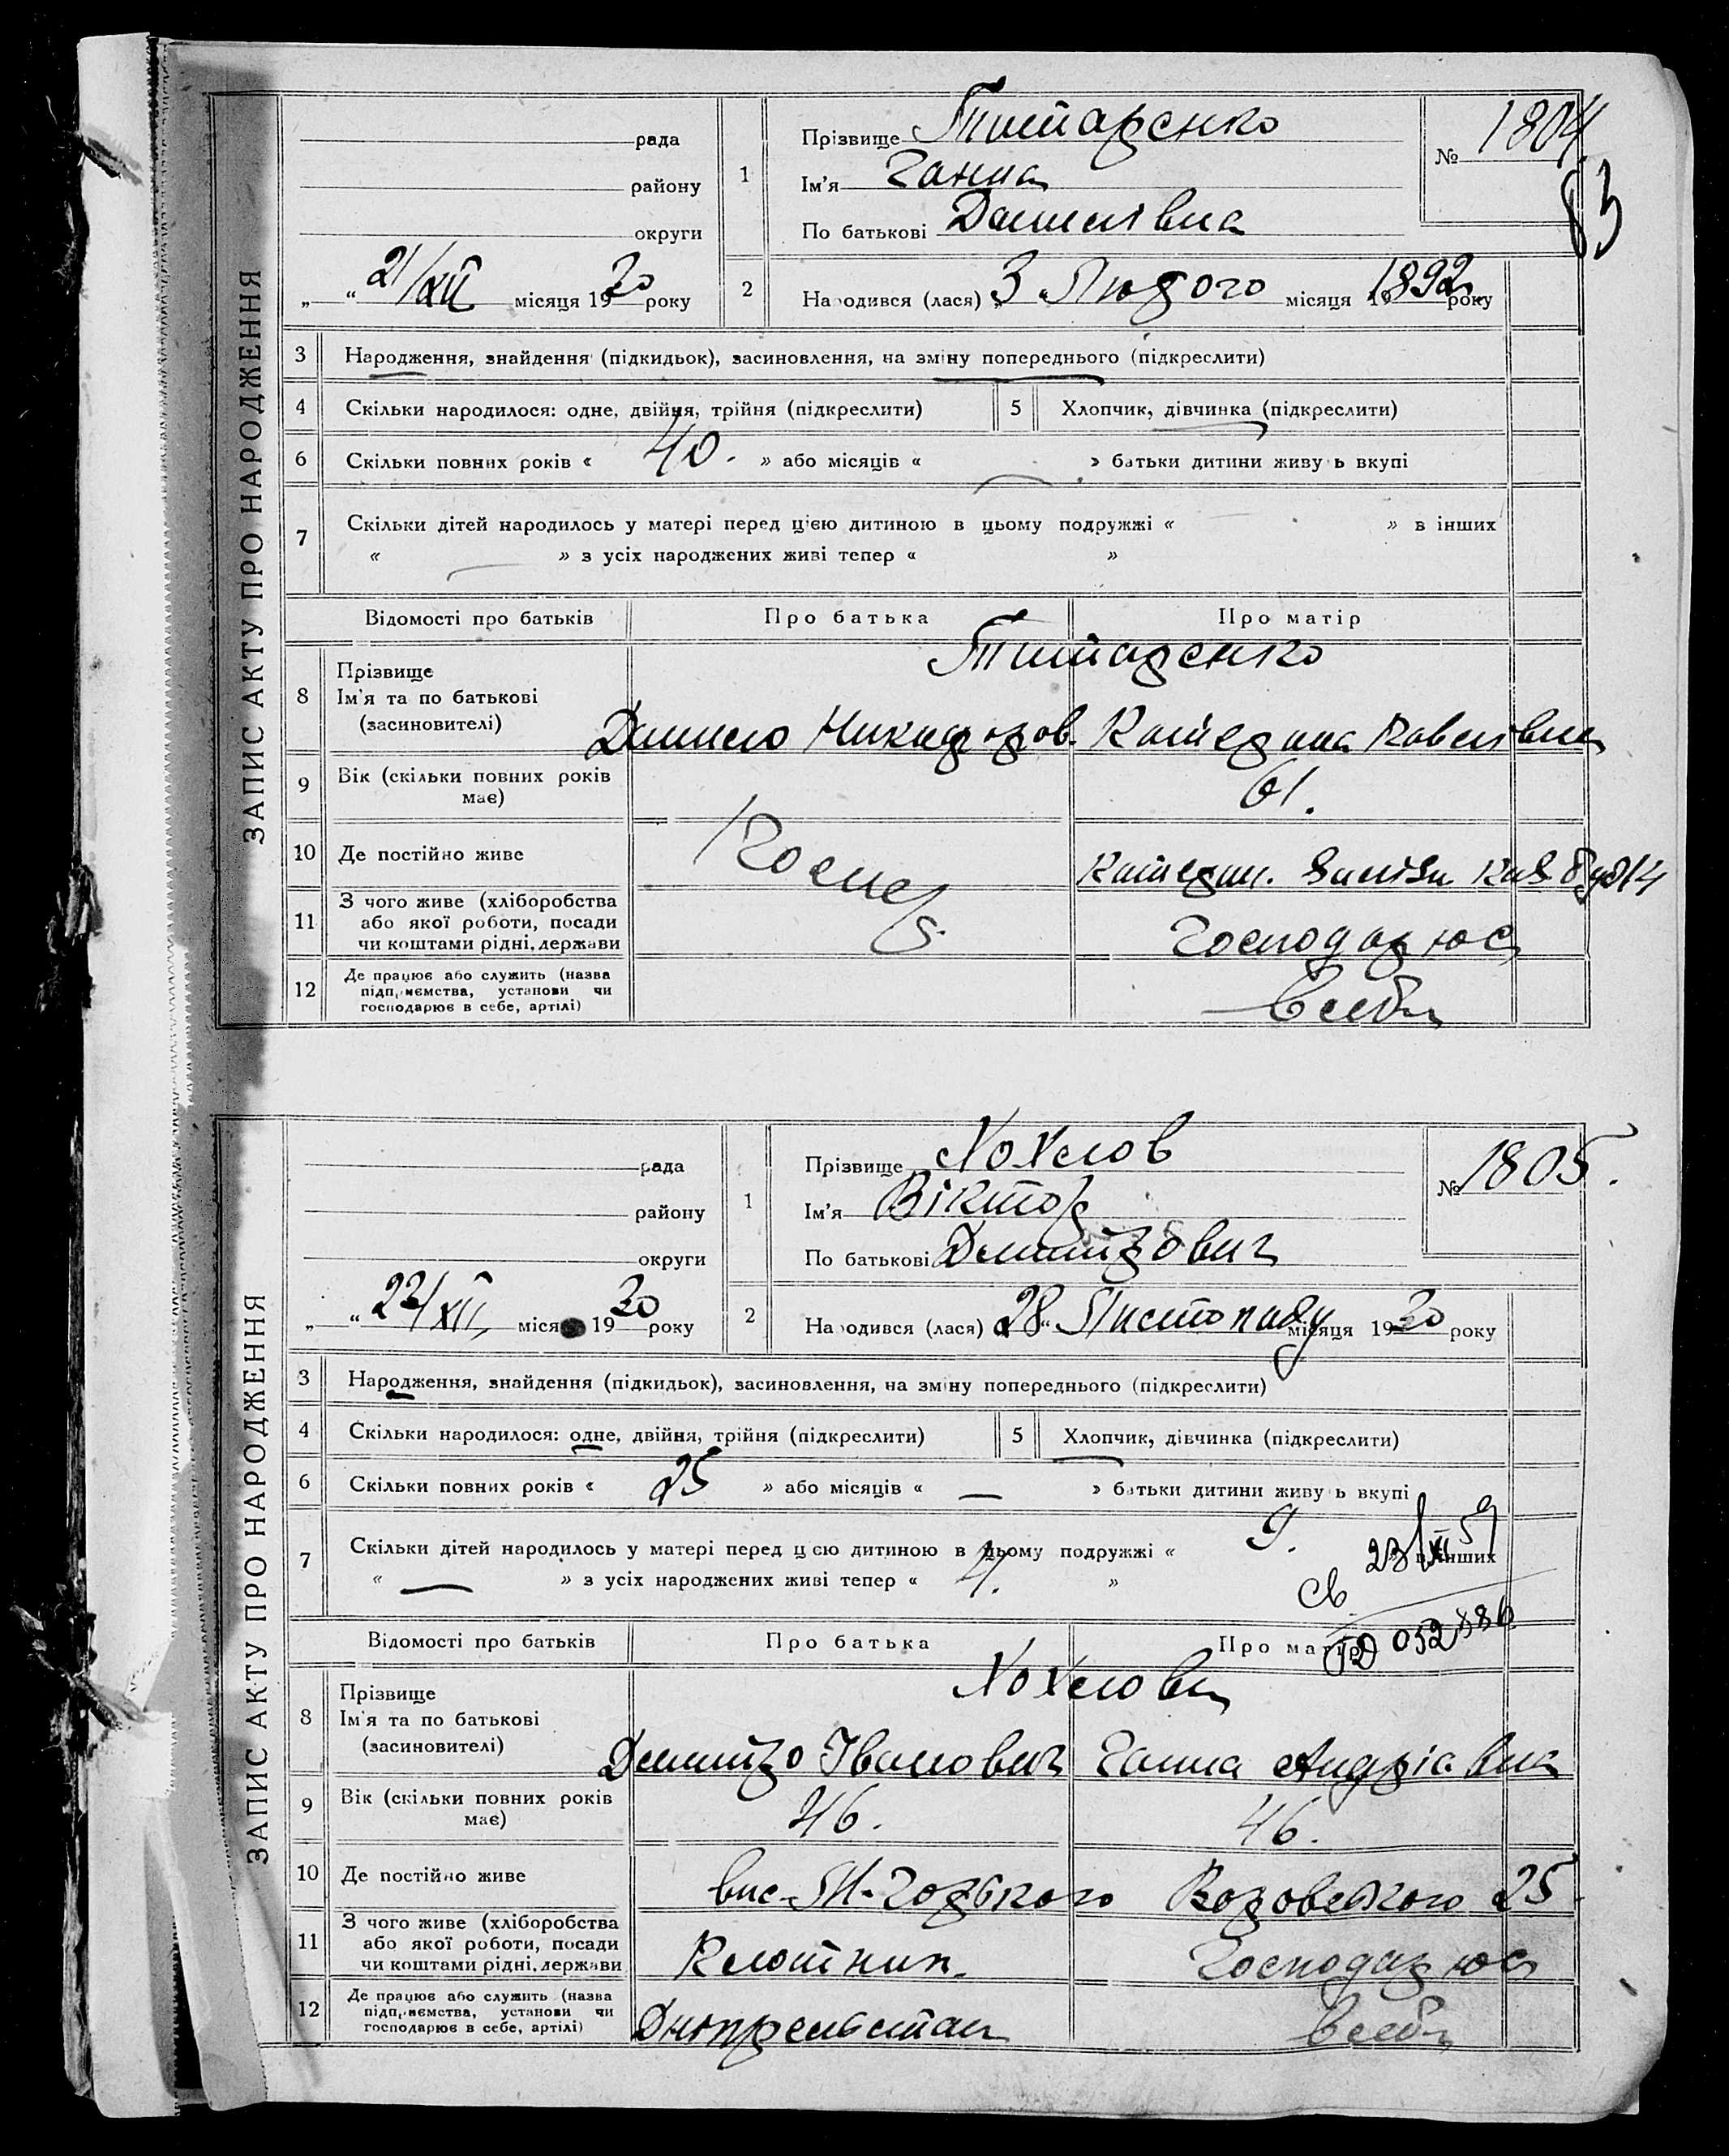 ЗАПИС АКТУ ПРО НАРОДЖЕННЯ
рада
району
округи
„ “ 21/XII місяця 1930 року
1 Прізвище Титаренко
Ім'я Ганна
По батькові Данилівна
№ 1804.
83
2 Народився (лася) „3 Лютого місяця 1892 року
3 Народження, знайдення (підкидьок), засиновлення, на зміну попереднього (підкреслити)
4 Скільки народилося: одне, двійня, трійня (підкреслити) 5 Хлопчик, дівчинка (підкреслити)
6 Скільки повних років « 40. » або місяців « » батьки дитини живуть вкупі
7 Скільки дітей народилось у матері перед цією дитиною в цьому подружжі « » в інших
« » з усіх народжених живі тепер « »
Відомості про батьків Про батька Про матір
Титаренко
8 Прізвище
Ім'я та по батькові
(засновителі)
Данило Никифоров. Катерина Павлівна
9 Вік (скільки повних років має) 61.
10 Де постійно живе Катерин. буд 14
11 З чого живе (хліборобства або якої роботи, посади чи коштами рідні, держави Господарює
12 Де працює або служить (назва підприємства, установи чи господарює в себе, артілі) в себе
ЗАПИС АКТУ ПРО НАРОДЖЕННЯ
рада
району
округи
„ “ 22/XII, місяця 1930 року
1 Прізвище Хохлов
Ім'я Віктор
По батькові Дмитрович
№ 1805.
2 Народився (лася) „28“ Листопаду місяця 1930 року
3 Народження, знайдення (підкидьок), засиновлення, на зміну попереднього (підкреслити)
4 Скільки народилося: одне, двійня, трійня (підкреслити) 5 Хлопчик, дівчинка (підкреслити)
6 Скільки повних років « 25 » або місяців « — » батьки дитини живуть вкупі
7 Скільки дітей народилось у матері перед цією дитиною в цьому подружжі « 9. » в інших
« — » з усіх народжених живі тепер « 4. »
23/XI 59
Св
052886
Відомості про батьків Про батька Про матір
Хохлови
8 Прізвище
Ім'я та по батькові
(засиновителі)
Дмитро Іванович Ганна Андріавна
9 Вік (скільки повних років має) 46. 46.
10 Де постійно живе вис. М-Горького Воровського 25.
11 З чого живе (хліборобства або якої роботи, посади чи коштами рідні, держави Плотник. Господарює
12 Де працює або служить (назва підприємства, установи чи господарює в себе, артілі) Дніпрельстан в себе